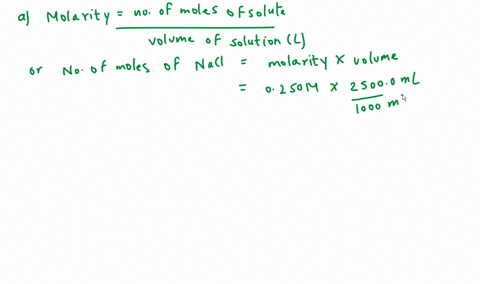 a) Molarity = no. of moles of solute
volume of solution (L)
or No. of moles of NaCl = molarity x volume
= 0.250M x 2500.0 mL
1000 m